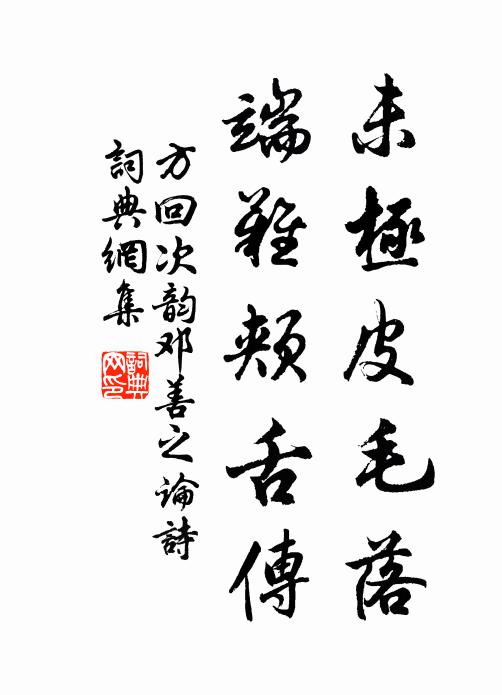 未極皮毛落
端難頰舌傳
方回次韵邓善之論詩
詞典網集
詞典网印